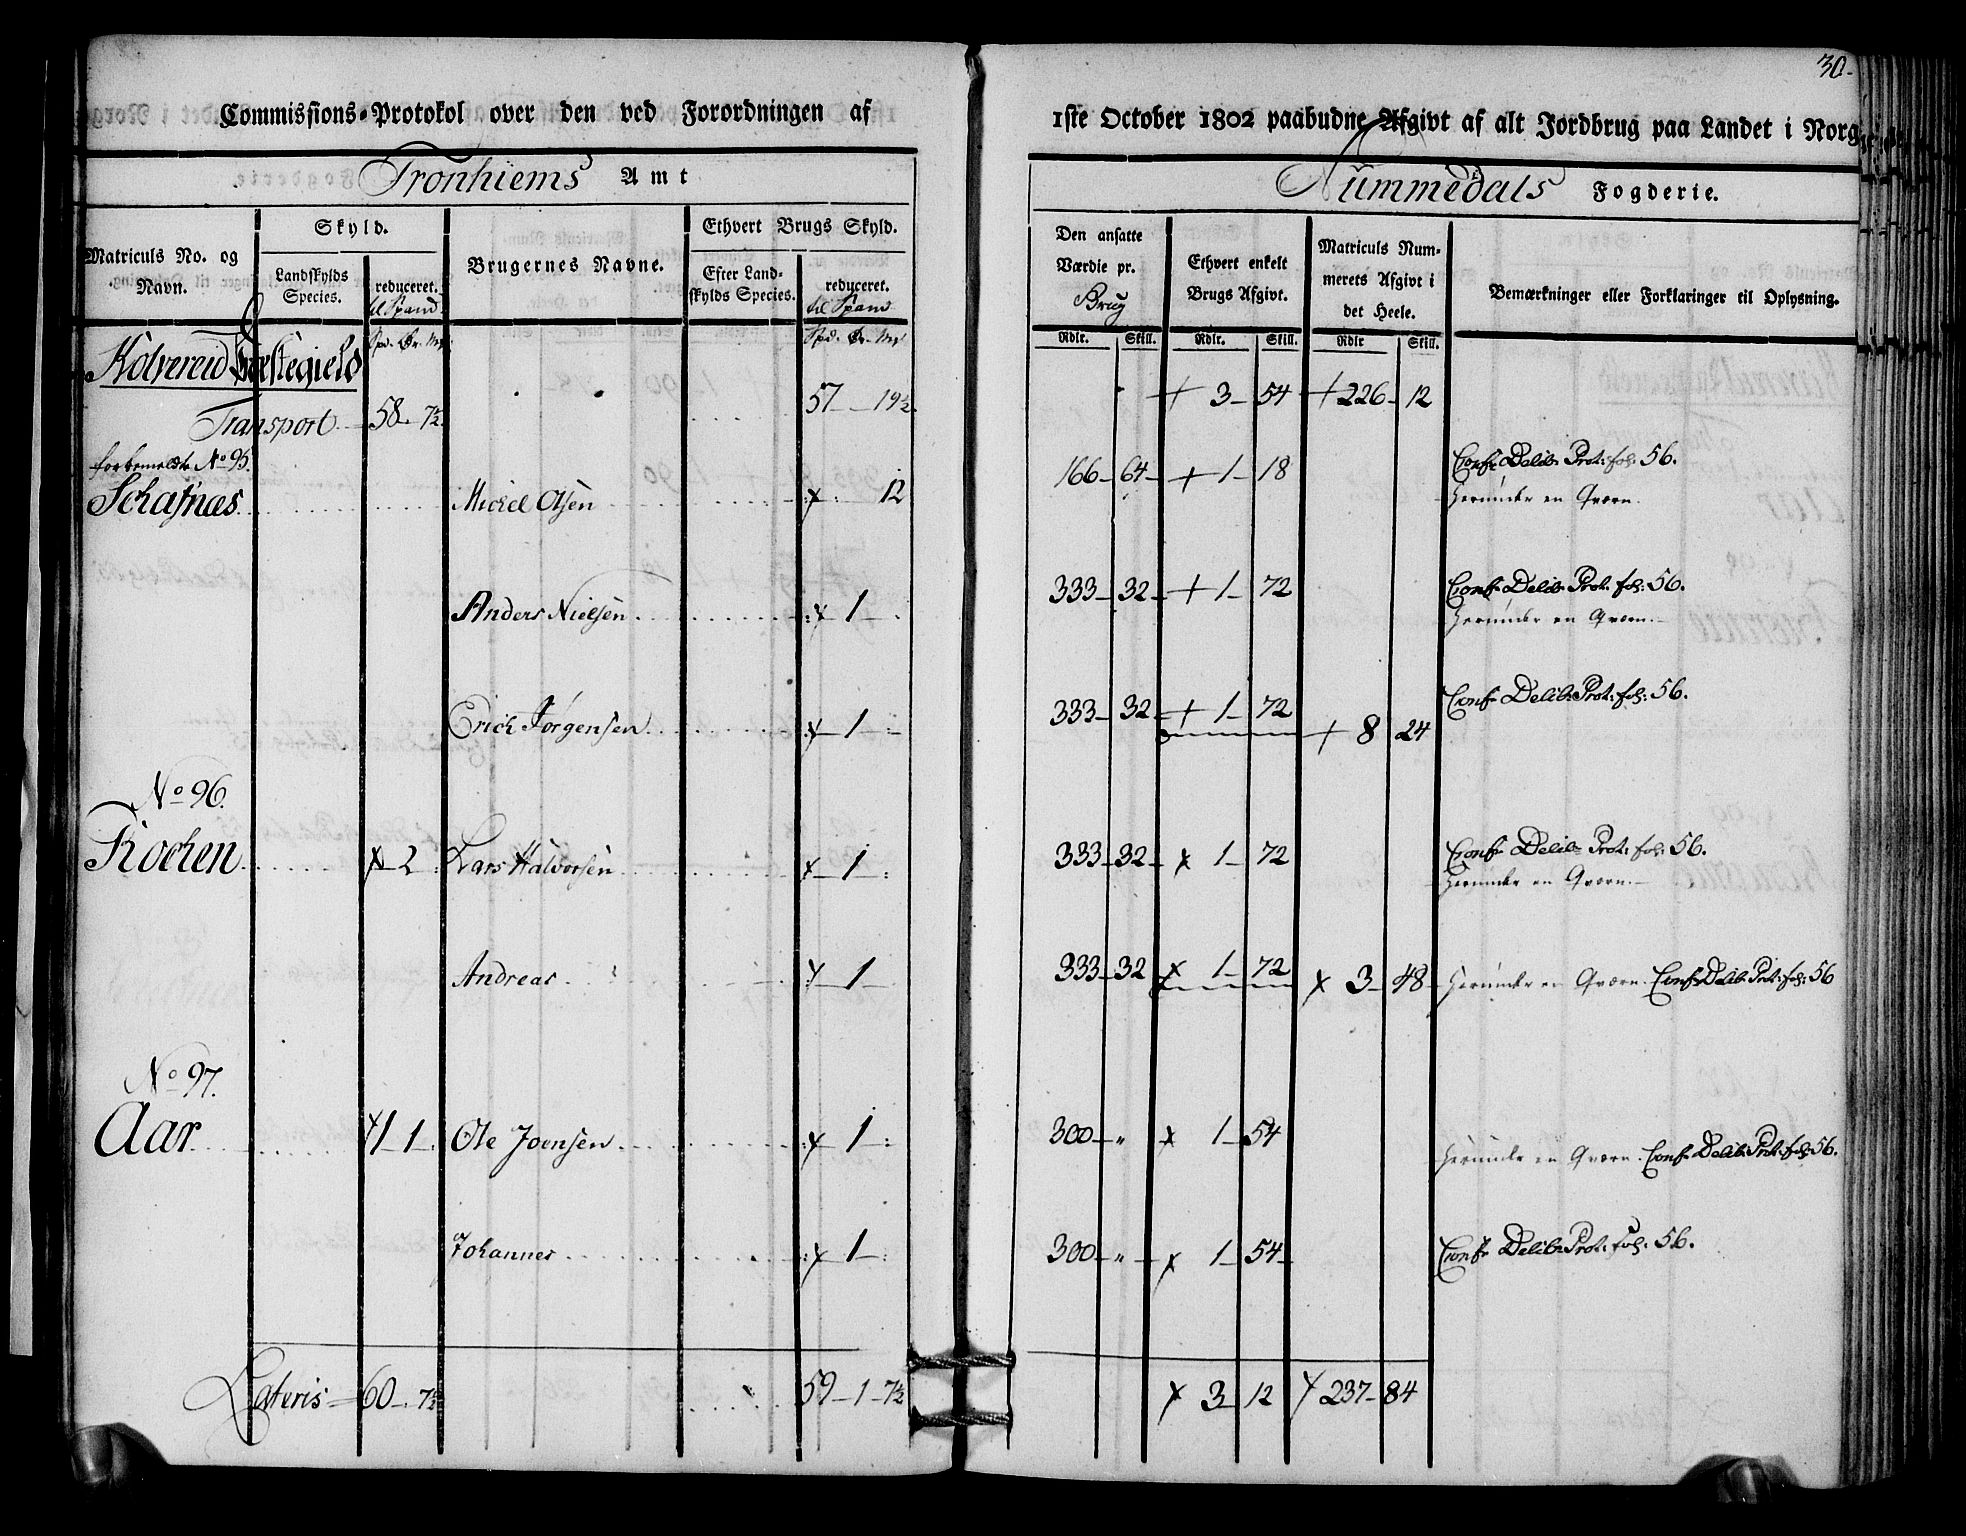 30.
Commissions-Protokol over den ved Forordningen af 1ste October 1802 paabudne Afgivt af alt Jordbrug paa Landet i Norge
Tronhiems Amt
Nummedals Fogderie.
Matriculs No. og Navn.
Skyld.
Landskylds Species.
reduceret. til Spand
Brugernes Navne.
Ethvert Brugs Skyld.
Efter Landskylds Species.
reduceret. til Spand
Den ansatte Værdie pr. Brug
Ethvert enkelt Brugs Afgivt.
Matriculs Nummerets Afgivt i det Heele.
Bemærkninger eller Forklaringer til Oplysning.
Spd. Ør. Mrk
Spd. Ør. Mrk
Rdlr. Skill. Rdlr. Skill. Rdlr Skill.
Kolvereid Præstegield
Transport 58 . 7½ 57 19½ + 3 54 + 226 12
forbemeldte No 95.
Schafnæs Michel Olsen 12 166 64 + 1 18 Conf Delib: Prot: fol: 56.
Herunder en Qværn.
Anders Nielsen 1 333 32 + 1 72 Conf Delib: Prot: fol: 56.
Herunder en Qværn.
Erich Jørgensen 1 333 32 + 1 72 + 8 24 Conf Delib: Prot: fol: 56.
No 96.
Kochen 2 Lars Halvorsen 1 333 32 x 1 72 Conf Delib: Prot: fol: 56.
Herunder en Qværn.
Andreas 1 333 32 x 1 72 x 3 48 Herunder en Qværn. Conf Delib: Prot: fol: 56
No 97.
Aar 1 1 Ole Joensen x 1 300 " x 1 54 Herunder en Qværn. Conf Delib: Prot: fol: 56.
Johannes x 1 300 " x 1 54 Conf Delib: Prot: fol: 56.
Lateris 60 . 7½ 59 1 7½ x 3 12 x 237 84